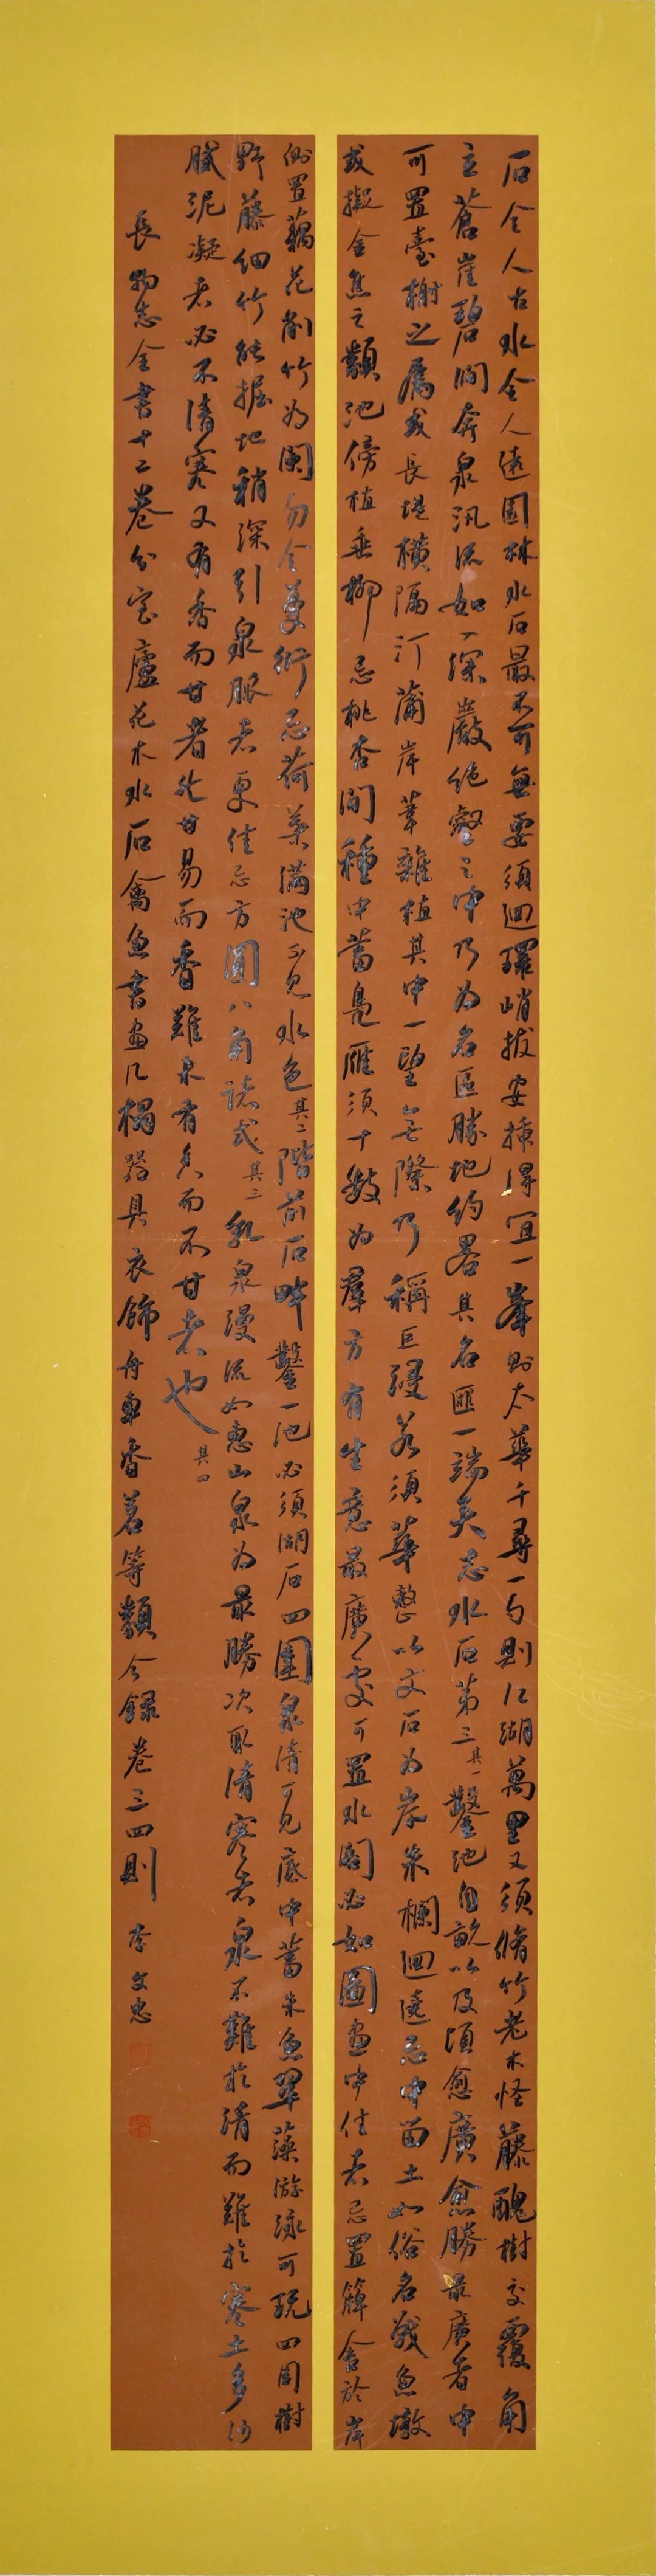 石令人古水令人遠園林水石最不可無要須迴環峭拔安插得宜一峯則太華千尋一勺則江湖萬里又須脩竹老木怪藤醜樹交覆角
立蒼崖碧澗奔泉汛流如入深巖絕壑之中乃為名區勝地約畧其名匪一端矣志水石第三其一鑿池自畝以及頃愈廣愈勝最廣者中
可置臺榭之屬或長堤橫隔汀蒲岸葦雜植其中一望無際乃稱巨浸若須華整以文石為岸朱欄迴遶忌中留土如俗名戰魚墩
或擬金焦之類池傍植垂柳忌桃杏間種中蓄鳧雁須十數為羣方有生意最廣處可置水閣必如圖畫中佳者忌置簰舍於岸
側置藕花削竹為闌勿令蔓衍忌荷葉滿池不見水色其二階前石畔鑿一池必須湖石四圍泉清可見底中蓄朱魚翠藻游泳可玩四周樹
野藤細竹能掘地稍深引泉脈者更佳忌方圓八角諸式其三乳泉漫流如惠山泉為最勝次取清寒者泉不難於清而難於寒土多沙
膩泥凝者必不清寒又有香而甘者然甘易而香難泉有香而不甘者也其四
長物志全書十二卷分室廬花木水石禽魚書畫几榻器具衣飾舟車香茗等類今錄卷三四則 李文惠